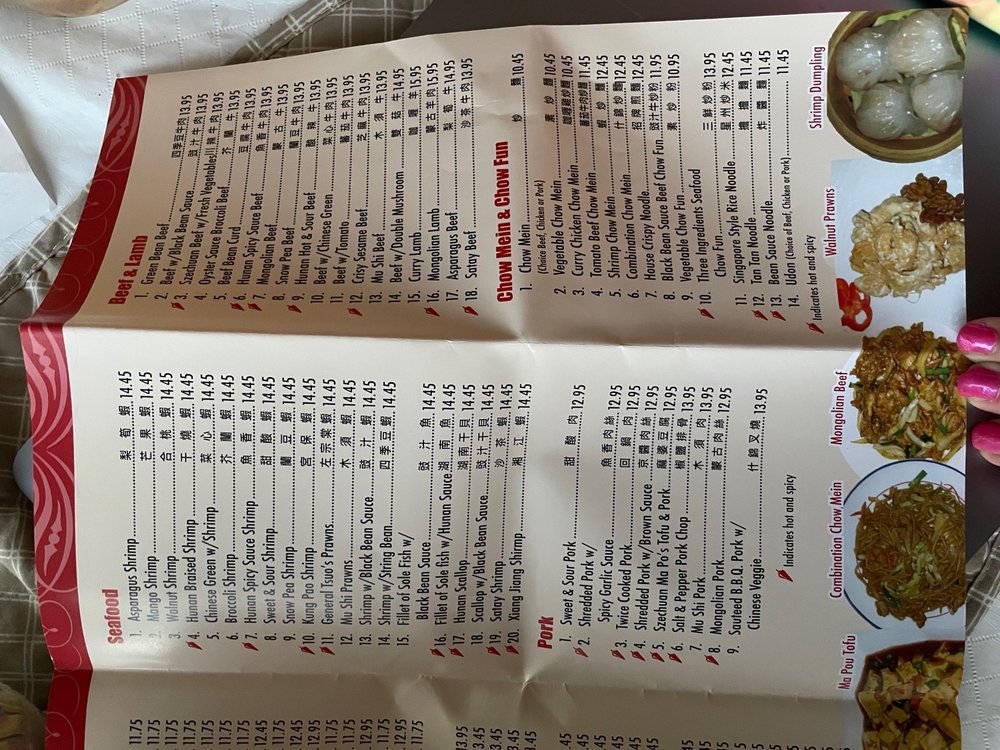 11.75
11.75
11.75
11.75
11.75
12.45
12.45
12.95
11.75
11.75
12.95
11.75
13.95
Seafood
1. Asparagus Shrimp 梨筍蝦 14.45
2. Mango Shrimp 芒果蝦 14.45
3. Walnut Shrimp 合桃蝦 14.45
4. Hunan Braised Shrimp 干燒蝦 14.45
5. Chinese Green w/Shrimp 菜心蝦 14.45
6. Broccoli Shrimp 芥蘭蝦 14.45
7. Hunan Spicy Sauce Shrimp 魚香蝦 14.45
8. Sweet & Sour Shrimp 甜酸蝦 14.45
9. Snow Pea Shrimp 蘭豆蝦 14.45
10. Kung Pao Shrimp 宮保蝦 14.45
11. General Tsuo's Prawns 左宗棠蝦 14.45
12. Mu Shi Prawns 木須蝦 14.45
13. Shrimp w/Black Bean Sauce 豉汁蝦 14.45
14. Shrimp w/String Bean 四季豆蝦 14.45
15. Fillet of Sole Fish w/
Black Bean Sauce 豉汁魚 14.45
16. Fillet of Sole fish w/Hunan Sauce 湖南魚 14.45
17. Hunan Scallop 湖南干貝 14.45
18. Scallop w/Black Bean Sauce 豉汁干貝 14.45
19. Satay Shrimp 沙茶蝦 14.45
20. Xiang Jiang Shrimp 湘江蝦 14.45
Pork
1. Sweet & Sour Pork 甜酸肉 12.95
2. Shredded Pork w/
Spicy Garlic Sauce 魚香肉絲 12.95
3. Twice Cooked Pork 回鍋肉 12.95
4. Shredded Pork w/Brown Sauce 京醬肉絲 12.95
5. Szechuan Ma Po's Tofu & Pork 麻婆豆腐 12.95
6. Salt & Pepper Pork Chop 椒鹽排骨 13.95
7. Mu Shi Pork 木須肉 13.95
8. Mongolian Pork 蒙古肉絲 12.95
9. Sauteed B.B.Q. Pork w/
Chinese Veggie 什錦叉燒 13.95
Indicates hot and spicy
Beef & Lamb
1. Green Bean Beef 四季豆牛肉 13.95
2. Beef w/Black Bean Sauce 豉汁牛肉 13.95
3. Szechuan Beef w/Fresh Vegetables!!! 辣牛肉 13.95
4. Oyster Sauce Broccoli Beef 芥蘭牛 13.95
5. Beef Bean Curd 豆腐牛肉 13.95
6. Hunan Spicy Sauce Beef 魚香牛肉 13.95
7. Mongolian Beef 蒙古牛 13.95
8. Snow Pea Beef 蘭豆牛肉 13.95
9. Hunan Hot & Sour Beef 酸辣牛 13.95
10. Beef w/Chinese Green 菜心牛肉 13.95
11. Beef w/Tomato 蕃茄牛肉 13.95
12. Crisy Sesame Beef 芝麻牛肉 13.95
13. Mu Shi Beef 木須牛 13.95
14. Beef w/Double Mushroom 雙菇牛 14.95
15. Curry Lamb 咖喱羊 15.95
16. Mongolian Lamb 蒙古羊肉 15.95
17. Asparagus Beef 梨筍牛 14.95
18. Satay Beef 沙茶牛肉 13.95
Chow Mein & Chow Fun
1. Chow Mein 炒麵 10.45
(Choice Beef, Chicken or Pork)
2. Vegetable Chow Mein 素炒麵 10.45
3. Curry Chicken Chow Mein 咖喱雞炒麵 10.45
4. Tomato Beef Chow Mein 蕃茄牛肉炒麵 11.45
5. Shrimp Chow Mein 蝦炒麵 12.45
6. Combination Chow Mein 什錦炒麵 12.45
7. House Crispy Noodle 招牌煎麵 12.45
8. Black Bean Sauce Beef Chow Fun 豉汁牛炒粉 11.95
9. Vegetable Chow Fun 素炒粉 10.95
10. Three Ingredients Seafood
Chow Fun 三鮮炒粉 13.95
11. Singapore Style Rice Noodle 星州炒米 12.45
12. Tan Tan Noodle 擔擔麵 11.45
13. Bean Sauce Noodle 炸醬麵 11.45
14. Udon (Choice of Beef, Chicken or Pork) 11.45
Indicates hot and spicy
Ma Pou Tofu
Combination Chow Mein
Mongolian Beef
Walnut Prawns
Shrimp Dumpling